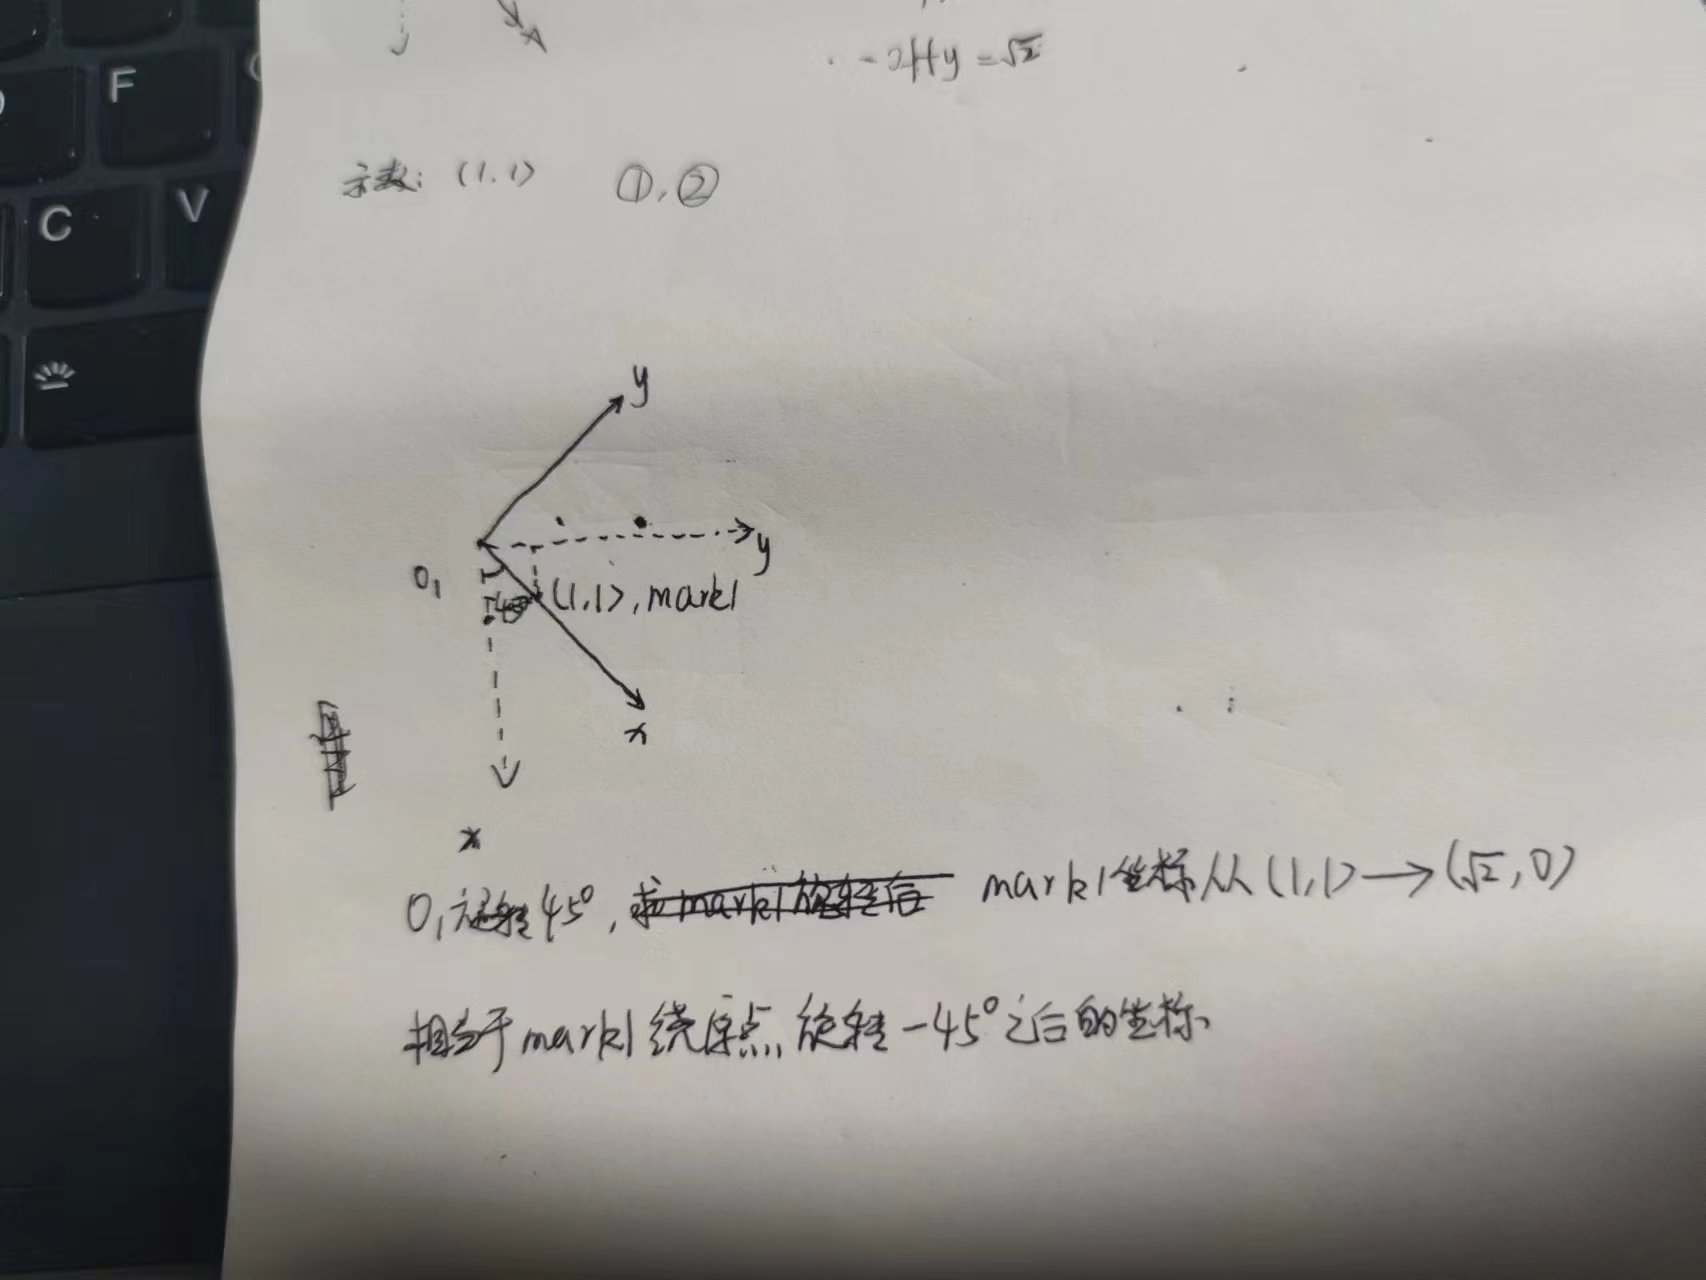 F
C
V
-x+y=√2
示数: (1,1) ①,②
y
y
O₁
45° (1,1), mark1
x
x
O₁旋转45°, 求mark1旋转后 mark1坐标从(1,1)→(√2,0)
相当于mark1绕原点旋转-45°之后的坐标